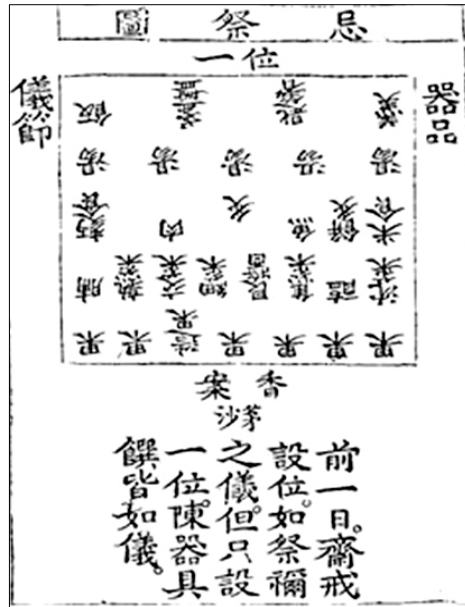 忌祭圖
一位
器品
羹 匙箸 盞盤 飯
湯 湯 湯 湯 湯
米食 魚 炙 肉 麪食
沈菜 醢 艮醬 熟菜 脯
果 果 果 果 造果 果 果
儀節
香案
茅沙
前一日。齋戒
設位。如祭禰
之儀。但只設
一位。陳器具
饌。皆如儀。